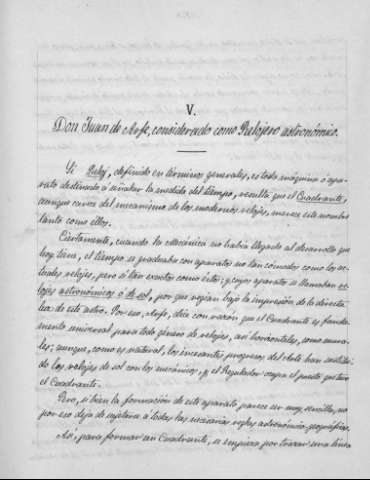 V.
Don Juan de Arfe, considerado como Relojero astronómico.
Si Reloj, definido en términos generales, es toda máquina ó apa-
rato destinado á señalar la medida del tiempo, resulta que el Cuadrante,
aunque carece del mecanismo de los modernos relojes, merece este nombre
tanto como ellos.
Ciertamente, cuando la Mecánica no habia llegado al desarrollo que
hoy tiene, el tiempo se graduaba con aparatos no tan cómodos como los ac-
tuales relojes, pero sí tan exactos como éstos; y cuyos aparatos se llamaban re-
lojes astronómicos ó de sol, por que regian bajo la impresión de la directa
luz de este astro. Por eso, Arfe, dice con razón que el Cuadrante es funda-
mento universal, para todo género de relojes, así horizontales, como mura-
les; aunque, como es natural, los incesantes progresos del Arte han
de los relojes de sol con los mecánicos, y el Regulador ocupa el puesto que tuvo
el Cuadrante.
Pero, si bien la formación de este aparato, parece un muy sencilla, no
por eso deja de sujetarse á todas las necesarias reglas astronómico-geográficas.
Así, para formar un Cuadrante, se empieza por trazar una línea